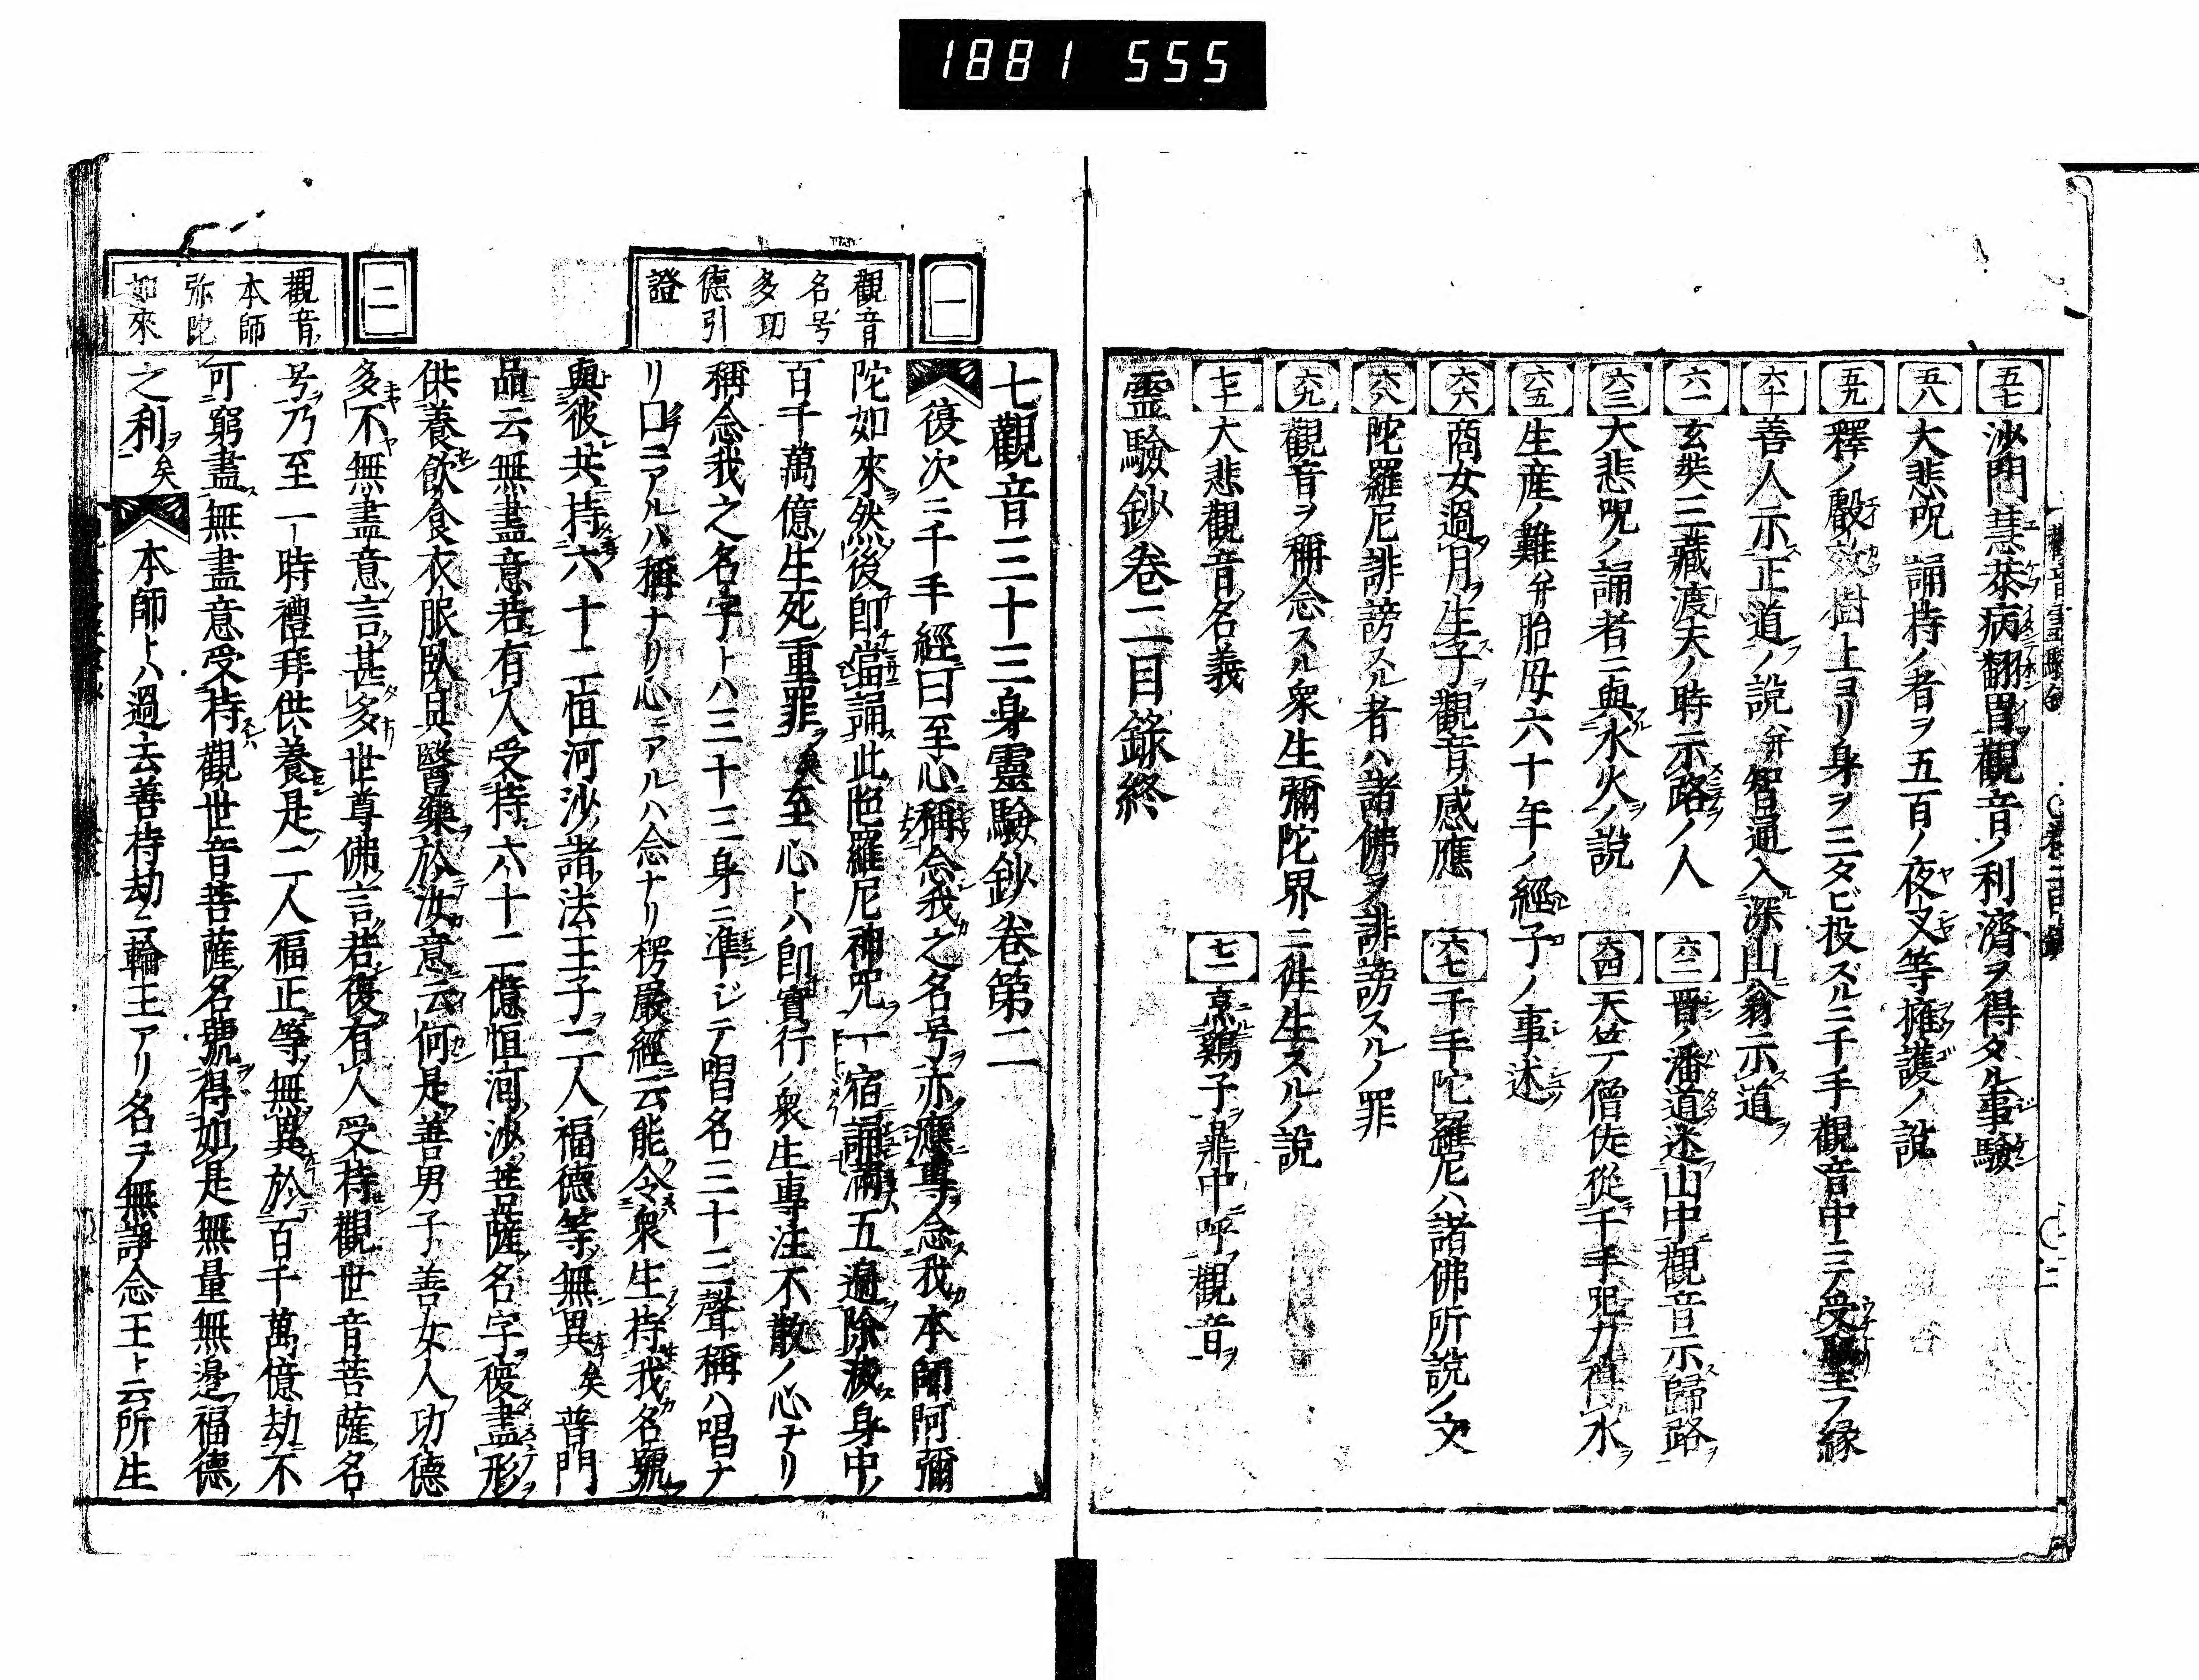 1881 555
五七 沙門慧恭病翻胃觀音ノ利濟ヲ得タル事驗
五八 大悲呪誦持ノ者ヲ五百ノ夜叉等擁護ノ説
五九 釋ノ毆 樹上ヨリ身ヲ三タビ投ズルニ千手觀音中ニテ受 玉フ縁
六十 善人示正道ノ説并智通入深山翁示道
六一 玄奘三藏渡天ノ時示路ノ人
六二 晋ノ潘道迷山中觀音示歸路
六三 大悲呪ノ誦者ニ與水火ノ説
六四 天竺ノ僧徒從千手咒力得水
六五 生産ノ難并胎母六十年ノ經子ノ事述
六六 商女過月生子觀音ノ感應
六七 千手陀羅尼ハ諸佛所説ノ文
六八 陀羅尼誹謗スル者ハ諸佛ヲ誹謗スルノ罪
六九 觀音ヲ稱念スル衆生彌陀界ニ徃生スルノ説
七十 大悲觀音名義
七一 烹鷄子鼎中呼觀音
靈驗鈔卷二目録終
一 觀音名号多功德引證
七觀音三十三身靈驗鈔卷第二
復次ニ千手經曰至心稱念我之名号亦應專念我本師阿彌
陀如來然後即當誦此陀羅尼神咒一宿誦滿五遍除滅身中
百千萬億生死重罪矣至心トハ即實行ノ衆生專注不散ノ心ナリ
稱念我之名字トハ三十三身ニ準ジテ唱名三十三聲稱ハ唱ナ
リ口ニアルハ稱ナリ心ニアルハ念ナリ楞嚴經云能令衆生持我名號
與彼共持六十二恒河沙諸法王子二人福德等無異矣普門
品云無盡意若有人受持六十二億恒河沙菩薩名字復盡形
供養飲食衣服臥具醫藥於汝意云何是善男子善女人功德
多不無盡意言甚多世尊佛言若復有人受持觀世音菩薩名
号乃至一時禮拜供養是二人福正等無異於百千萬億劫不
可窮盡無盡意受持觀世音菩薩名號得如是無量無邊福德
之利矣 本師トハ過去善持劫ニ輪王アリ名ヲ無諍念王ト云所生
二 觀音本師弥陀如來